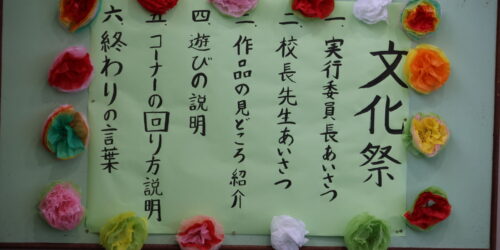 文化祭
一、実行委員長あいさつ
二、校長先生あいさつ
三、作品の見どころ紹介
四、遊びの説明
五、コーナーの回り方説明
六、終わりの言葉